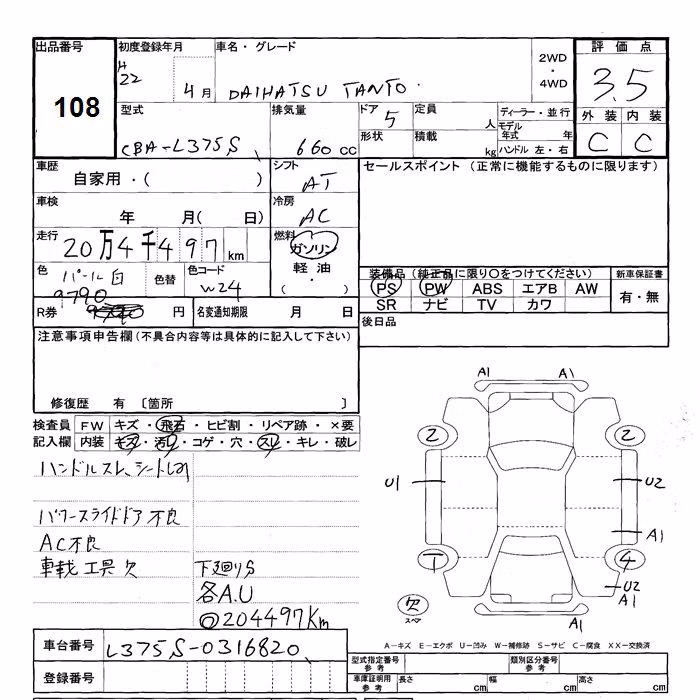 出品番号 初度登録年月 車名・グレード 2WD ・ 4WD 評価点
108 H22 4月 DAIHATSU TANTO. 3.5
型式 排気量 ドア 定員 ディーラー・並行 外装 内装
CBA-L375S 660cc 5 人 モデル年式 年 C C
形状 積載 kg ハンドル 左・右
車歴 シフト セールスポイント (正常に機能するものに限ります)
自家用・( ) AT
車検 冷房
年 月( 日) AC
走行 燃料
20万4千497km ガソリン
・
軽油
・
( )
色 パール白 色替 色コード W24
装備品(純正品に限り○をつけてください) 新車保証書
PS PW ABS エアB AW 有・無
SR ナビ TV カワ
9790
R券 円 名変通知期限 月 日 後日品
注意事項申告欄(不具合内容等は具体的に記入して下さい)
修復歴 有 〔箇所 〕
検査員 FW キズ・飛石・ヒビ割・リペア跡・×要
記入欄 内装 キズ・汚レ・コゲ・穴・スレ・キレ・破レ
ハンドルスレ、シート
パワースライドドア不良
AC不良
車載工具欠 下廻りS
各A.U
◎204497Km
A1 A1
2 2
U1 U2
A1
T 4
U2
A1
欠
スペア
A1
車台番号 L375S-0316820
登録番号
A-キズ E-エクボ U-凹み W-補修跡 S-サビ C-腐食 XX-交換済
型式指定番号 参考 類別区分番号 参考
車庫証明用 参考 長さ cm 幅 cm 高さ cm